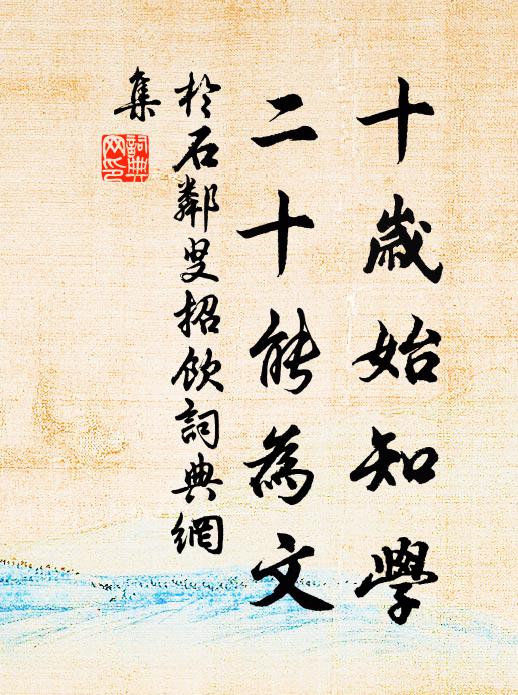 十歲始知學
二十能為文
於石鄰叟招飲詞典網
集
詞典網印